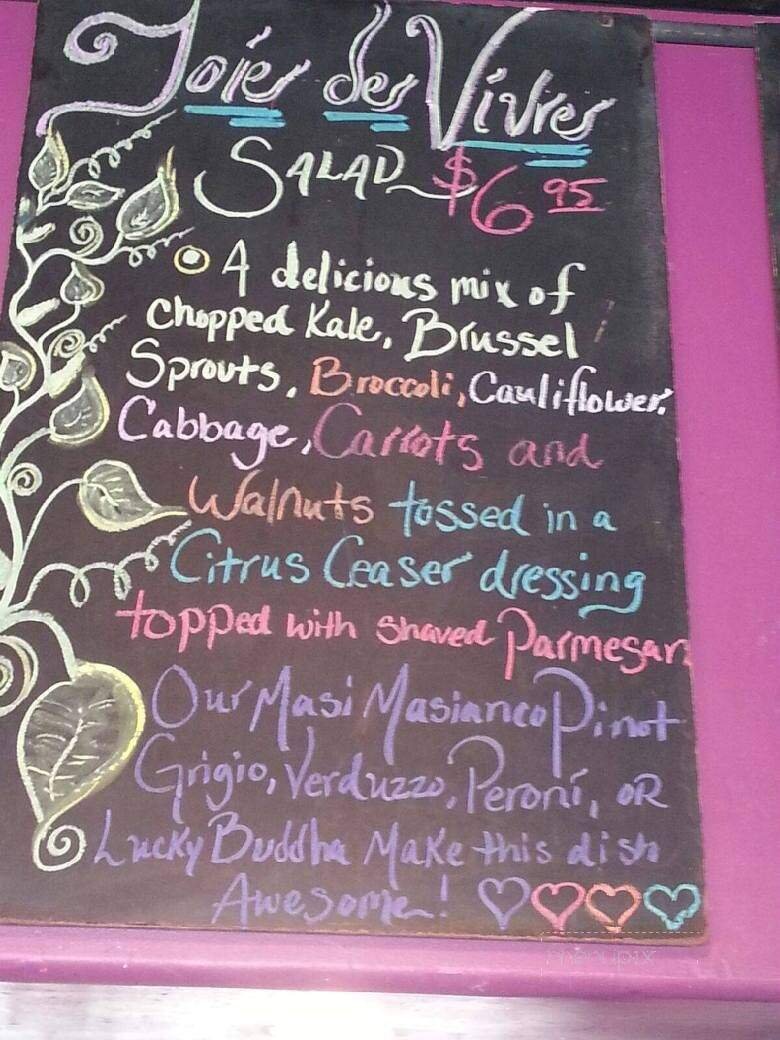 Joies des Vivres
SALAD $6 95
A delicious mix of
chopped Kale, Brussel
Sprouts, Broccoli, Cauliflower,
Cabbage, Carrots and
Walnuts tossed in a
Citrus Ceaser dressing
topped with shaved Parmesan
Our Masi Masianco Pinot
Grigio, Verduzzo, Peroni, OR
Lucky Buddha Make this dish
Awesome!
menupix